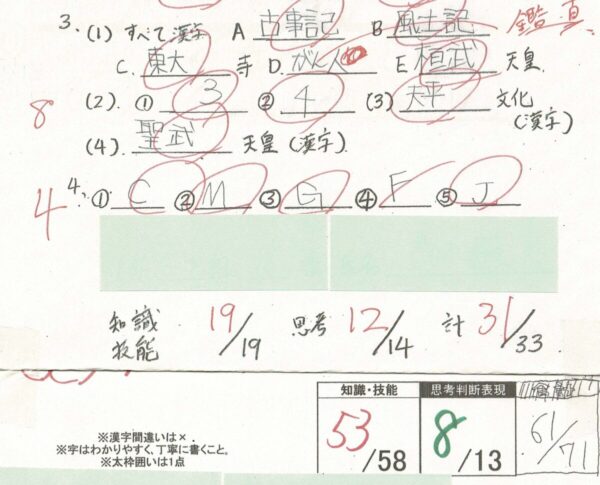 3. (1) すべて漢字 A 古事記 B 風土記 鑑真
C. 東大 寺 D. がん人 E 桓武 天皇.
8 (2). ① 3 ② 4 (3) 天平 文化 (漢字)
(4). 聖武 天皇 (漢字)
4 4. ① C ② M ③ G ④ F ⑤ J
知識 技能 19/19 思考 12/14 計 31/33
知識・技能 思考判断表現
※漢字間違いは×.
※字はわかりやすく、丁寧に書くこと。
※太枠囲いは1点
53/58 8/13 61/71